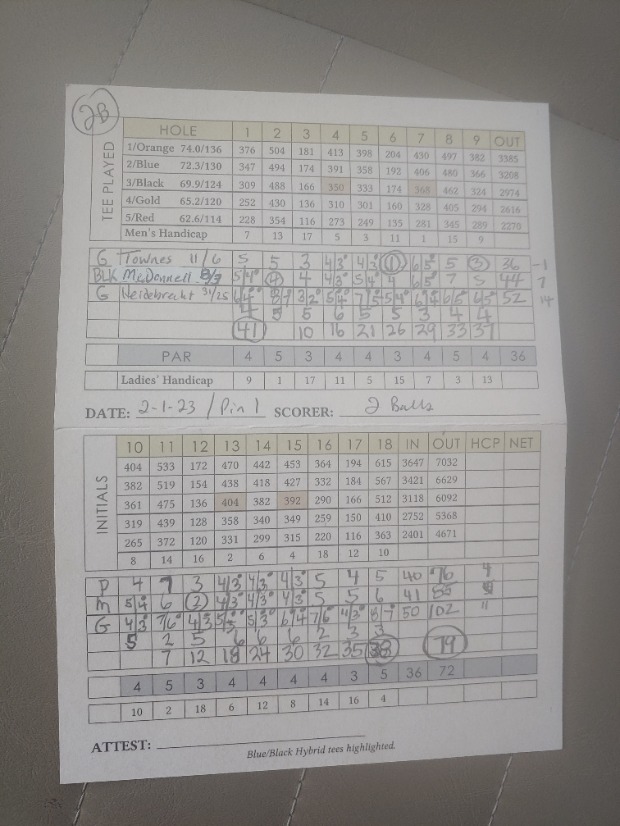 2B
HOLE 1 2 3 4 5 6 7 8 9 OUT
TEE PLAYED
1/Orange 74.0/136 376 504 181 413 398 204 430 497 382 3385
2/Blue 72.3/130 347 494 174 391 358 192 406 480 366 3208
3/Black 69.9/124 309 488 166 350 333 174 368 462 324 2974
4/Gold 65.2/120 252 430 136 310 301 160 328 405 294 2616
5/Red 62.6/114 228 354 116 273 249 135 281 345 289 2270
Men's Handicap 7 13 17 5 3 11 1 15 9
G Townes 11/6 5 5 3 4/3 4/3 1 6/5 5 3 36 -1
BLK McDonnell 5/4 4 4 4/3 5/4 4 6/5 7 5 44 7
G Heidebrecht 31/25 6/4 8/7 3/2 5/4 7/5 5/4 6/5 52 14
4 5 5 6 5 5 3 4 4
41 10 16 21 26 29 33 37
PAR 4 5 3 4 4 3 4 5 4 36
Ladies' Handicap 9 1 17 11 5 15 7 3 13
DATE: 2-1-23 / Pin 1 SCORER: 2 Balls
INITIALS
10 11 12 13 14 15 16 17 18 IN OUT HCP NET
404 533 172 470 442 453 364 194 615 3647 7032
382 519 154 438 418 427 332 184 567 3421 6629
361 475 136 404 382 392 290 166 512 3118 6092
319 439 128 358 340 349 259 150 410 2752 5368
265 372 120 331 299 315 220 116 363 2401 4671
8 14 16 2 6 4 18 12 10
P 4 7 3 4/3 4/3 4/3 5 4 5 40 76 4
M 5/4 6 2 4/3 4/3 4/3 5 5 6 41 85
G 4/3 7/6 4/3 5/3 5/3 6/4 7/6 4/3 8/7 50 102 11
5 2 5 6 6 6 2 3 3
7 12 18 24 30 32 35 38 79
4 5 3 4 4 4 4 3 5 36 72
10 2 18 6 12 8 14 16 4
ATTEST:
Blue/Black Hybrid tees highlighted.